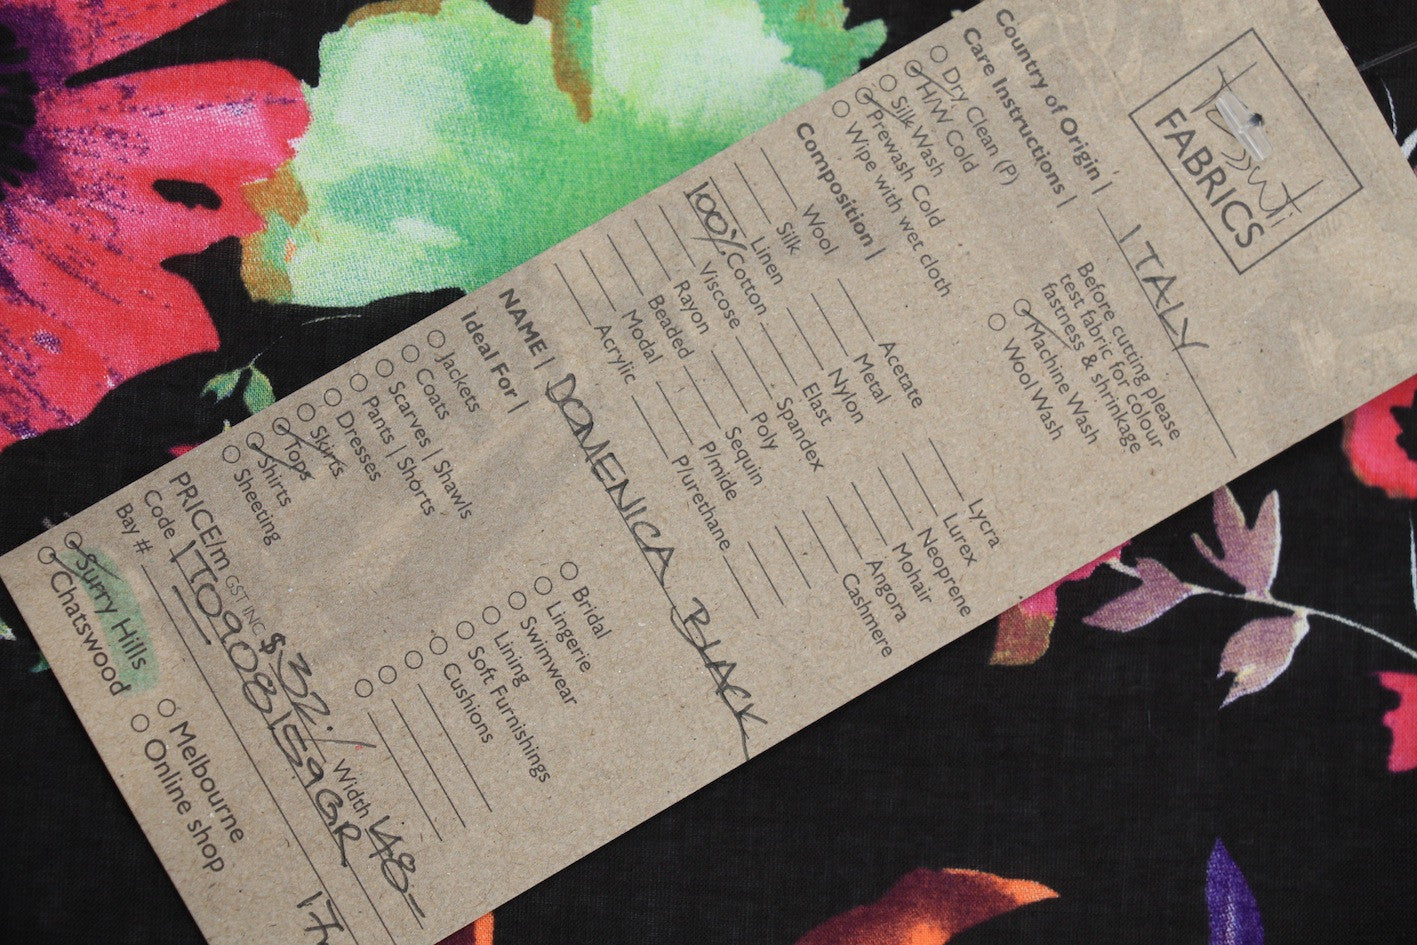 FABRICS
Country of Origin | ITALY
Care Instructions |
Dry Clean (P)
H/W Cold
Silk Wash
Prewash Cold
Wipe with wet cloth
Before cutting please
test fabric for colour
fastness & shrinkage
Machine Wash
Wool Wash
Composition |
Wool
Silk
Linen
100% Cotton
Viscose
Rayon
Beaded
Modal
Acrylic
Acetate
Metal
Nylon
Elast
Spandex
Poly
Sequin
P/mide
P/urethane
Lycra
Lurex
Neoprene
Mohair
Angora
Cashmere
NAME | DOMENICA BLACK
Ideal For |
Jackets
Coats
Scarves | Shawls
Pants | Shorts
Dresses
Skirts
Tops
Shirts
Sheeting
Bridal
Lingerie
Swimwear
Lining
Soft Furnishings
Cushions
PRICE/m GST INC $32./ Width 148-
Code |
Bay #
Surry Hills
Chatswood
Melbourne
Online shop